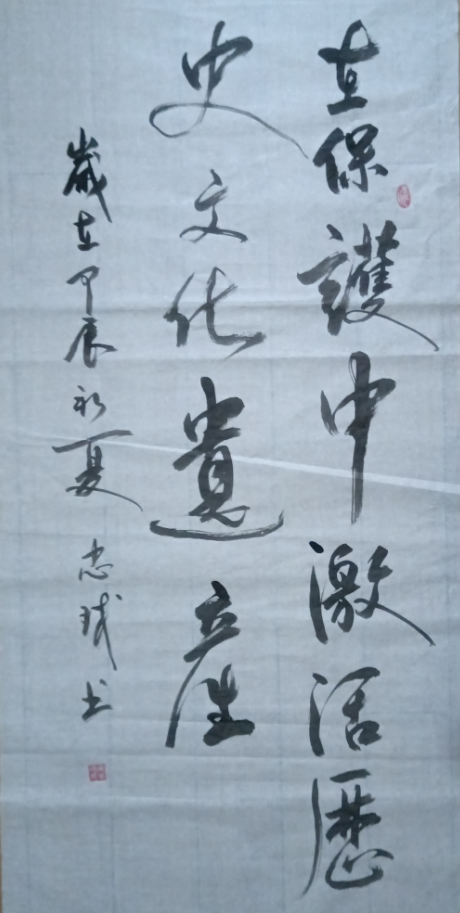 在保護中激活歷
史文化遺產
歲在甲辰初夏 忠 书